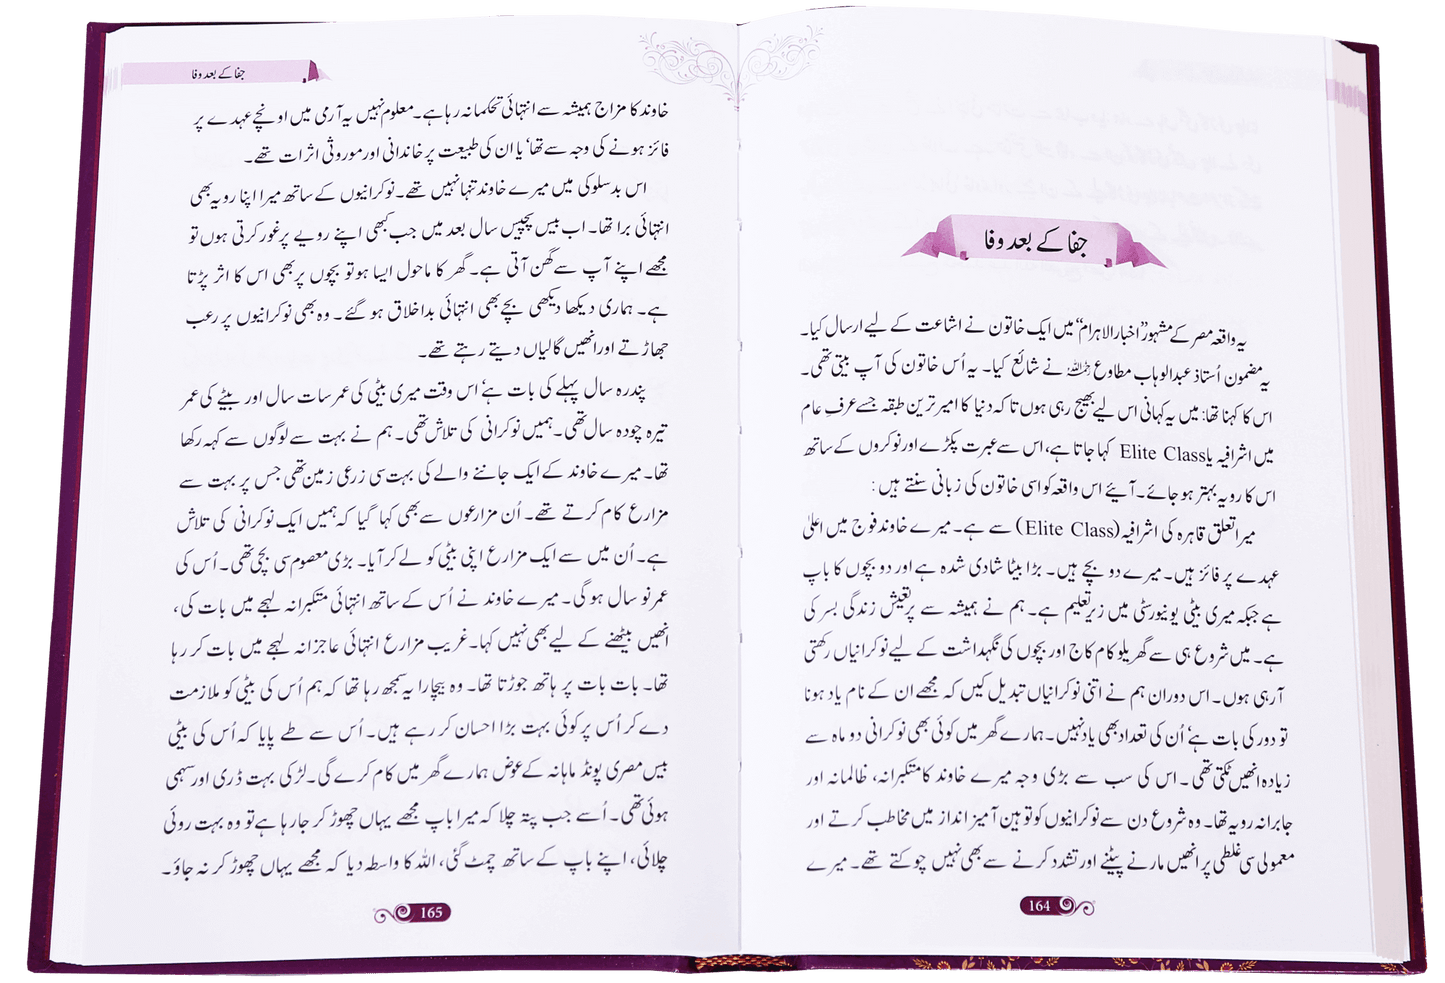 جفا کے بعد وفا
یہ واقعہ مصر کے مشہور ”اخبار الاہرام“ میں ایک خاتون نے اشاعت کے لیے ارسال کیا۔
یہ مضمون اُستاذ عبدالوہاب مطاوع رحمہ اللہ نے شائع کیا۔ یہ اُس خاتون کی آپ بیتی تھی۔
اس کا کہنا تھا: میں یہ کہانی اس لیے بھیج رہی ہوں تاکہ دنیا کا امیر ترین طبقہ جسے عرفِ عام
میں اشرافیہ یا Elite Class کہا جاتا ہے، اس سے عبرت پکڑے اور نوکروں کے ساتھ
اس کا رویہ بہتر ہو جائے۔ آیئے اس واقعہ کو اسی خاتون کی زبانی سنتے ہیں:
میرا تعلق قاہرہ کی اشرافیہ (Elite Class) سے ہے۔ میرے خاوند فوج میں اعلیٰ
عہدے پر فائز ہیں۔ میرے دو بچے ہیں۔ بڑا بیٹا شادی شدہ ہے اور دو بچوں کا باپ
ہے جبکہ میری بیٹی یونیورسٹی میں زیر تعلیم ہے۔ ہم نے ہمیشہ سے پرتعیش زندگی بسر کی
ہے۔ میں شروع ہی سے گھریلو کام کاج اور بچوں کی نگہداشت کے لیے نوکرانیاں رکھتی
آ رہی ہوں۔ اس دوران ہم نے اتنی نوکرانیاں تبدیل کیں کہ مجھے ان کے نام یاد ہونا
تو دور کی بات ہے، اُن کی تعداد بھی یاد نہیں۔ ہمارے گھر میں کوئی بھی نوکرانی دو ماہ سے
زیادہ انھیں ٹکتی تھی۔ اس کی سب سے بڑی وجہ میرے خاوند کا متکبرانہ، ظالمانہ اور
جابرانہ رویہ تھا۔ وہ شروع دن سے نوکرانیوں کو توہین آمیز انداز میں مخاطب کرتے اور
معمولی سی غلطی پر انھیں مارنے پیٹنے اور تشدد کرنے سے بھی نہیں چوکتے تھے۔ میرے
164
جفا کے بعد وفا
خاوند کا مزاج ہمیشہ سے انتہائی تحکمانہ رہا ہے۔ معلوم نہیں یہ آرمی میں اونچے عہدے پر
فائز ہونے کی وجہ سے تھا، یا ان کی طبیعت پر خاندانی اور موروثی اثرات تھے۔
اس بدسلوکی میں میرے خاوند تنہا نہیں تھے۔ نوکرانیوں کے ساتھ میرا اپنا رویہ بھی
انتہائی برا تھا۔ اب بیس پچیس سال بعد میں جب کبھی اپنے رویے پر غور کرتی ہوں تو
مجھے اپنے آپ سے گھن آتی ہے۔ گھر کا ماحول ایسا ہو تو بچوں پر بھی اس کا اثر پڑتا
ہے۔ ہماری دیکھا دیکھی بچے بھی انتہائی بداخلاق ہو گئے۔ وہ بھی نوکرانیوں پر رعب
جھاڑتے اور انھیں گالیاں دیتے رہتے تھے۔
پندرہ سال پہلے کی بات ہے، اس وقت میری بیٹی کی عمر سات سال اور بیٹے کی عمر
تیرہ چودہ سال تھی۔ ہمیں نوکرانی کی تلاش تھی۔ ہم نے بہت سے لوگوں سے کہہ رکھا
تھا۔ میرے خاوند کے ایک جاننے والے کی بہت سی زرعی زمین تھی جس پر بہت سے
مزارع کام کرتے تھے۔ اُن مزارعوں سے بھی کہا گیا کہ ہمیں ایک نوکرانی کی تلاش
ہے۔ اُن میں سے ایک مزارع اپنی بیٹی کو لے کر آیا۔ بڑی معصوم سی بچی تھی۔ اُس کی
عمر نو سال ہو گی۔ میرے خاوند نے اُس کے ساتھ انتہائی متکبرانہ لہجے میں بات کی،
انھیں بیٹھنے کے لیے بھی نہیں کہا۔ غریب مزارع انتہائی عاجزانہ لہجے میں بات کر رہا
تھا۔ بات بات پر ہاتھ جوڑتا تھا۔ وہ بیچارا یہ سمجھ رہا تھا کہ ہم اُس کی بیٹی کو ملازمت
دے کر اُس پر کوئی بہت بڑا احسان کر رہے ہیں۔ اُس سے طے پایا کہ اُس کی بیٹی
بیس مصری پونڈ ماہانہ کے عوض ہمارے گھر میں کام کرے گی۔ لڑکی بہت ڈری اور سہمی
ہوئی تھی۔ اُسے جب پتہ چلا کہ میرا باپ مجھے یہاں چھوڑ کر جا رہا ہے تو وہ بہت روئی
چلائی، اپنے باپ کے ساتھ چمٹ گئی، اللہ کا واسطہ دیا کہ مجھے یہاں چھوڑ کر نہ جاؤ۔
165